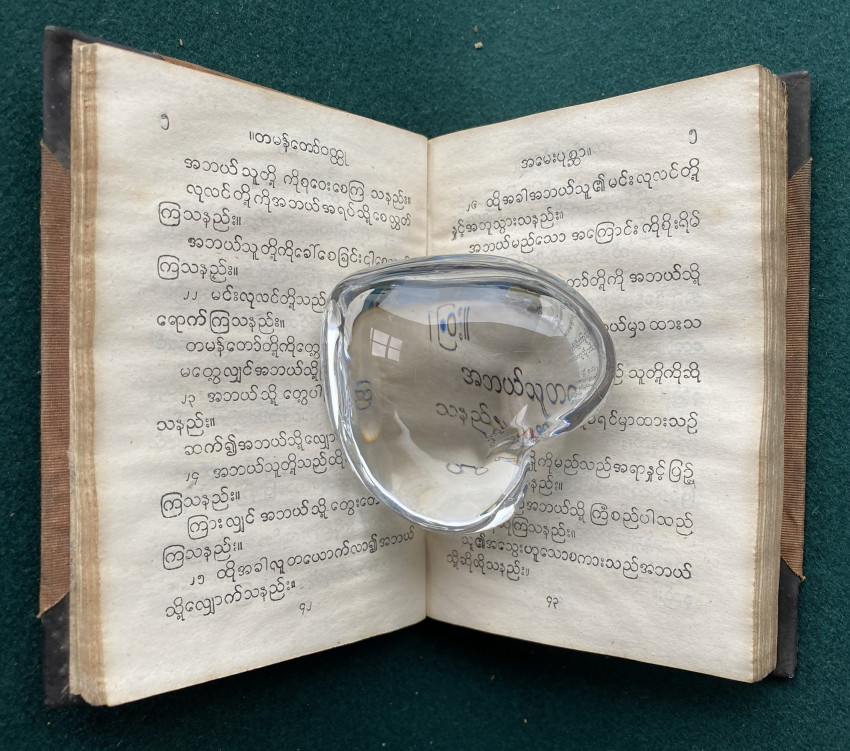 ၅
။တမန်တော်ဝတ္ထု
အဘယ်သူတို့ ကိုစုဝေးစေကြ သနည်း။
လုလင်တို့ကိုအဘယ်အရပ်သို့စေလွှတ်
ကြသနည်း။
အဘယ်သူတို့ကိုခေါ်စေခြင်းငါ
ကြသနည်း။
၂၂ မင်းလုလင်တို့သည်
ရောက်ကြသနည်း။
တမန်တော်တို့ကိုတွေ့
မတွေ့လျှင်အဘယ်သို့
၂၃ အဘယ်သို့ တွေ့ပါ
သနည်း။
ဆက်၍အဘယ်သို့လျှော
၂၄ အဘယ်သူတို့သည်ထို
ကြသနည်း။
ကြားလျှင် အဘယ်သို့ တွေးတော
ကြသနည်း။
၂၅ ထိုအခါလူတယောက်လာ၍အဘယ်
သို့လျှောက်သနည်း။
၄၂
၅
အမေးပုစ္ဆာ။
၂၆ ထိုအခါအဘယ်သူ၏မင်းလုလင်တို့
နှင့်အတူသွားသနည်း။
အဘယ်မည်သော အကြောင်းကိုစိုးရိမ်
တော်တို့ကို အဘယ်သို့
ယ်မှာထားသ
သူတို့ကိုဆို
အဘယ်သူတ
သနည်း
ရှင်မှာထားသဉ်
ကိုမည်သည်အရာနှင့်ပြဉ့်
နည်း။
အဘယ်သို့ ကြံစည်ပါသည်
ကြသနည်း။
သူ၏အသွေးဟူသောစကားသည်အဘယ်
သို့ဆိုထိုသနည်း။
၄၃